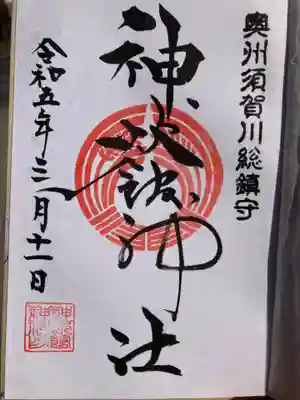 奥州須賀川総鎮守
神炊館神社
令和五年三月十一日